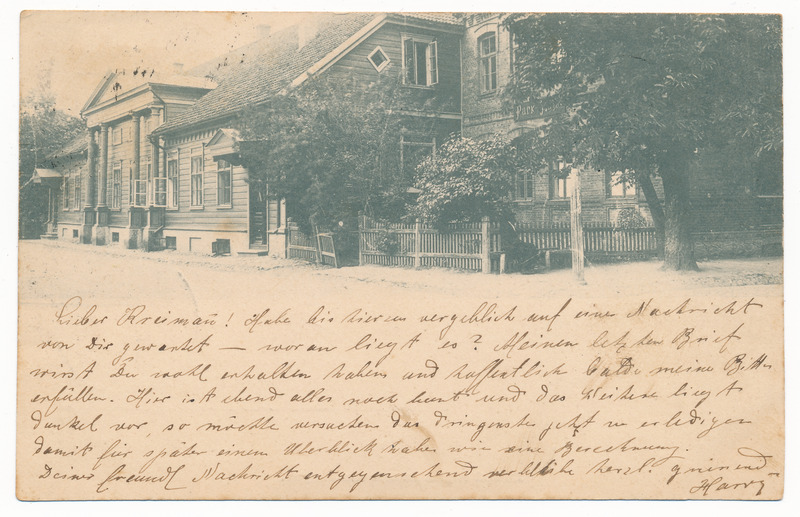 Park
Lieber Kreimann! Habe bis hierzu vergeblich auf eine Nachricht
von Dir gewartet — woran liegt es? Meinen letzten Brief
wirst Du wohl erhalten haben und hoffentlich bald meine Bitte
erfüllen. Hier ist ebend alles noch bunt und das Weitere liegt
dunkel vor, so möchte versuchen das Dringenste jetzt zu erledigen
damit für später einem Uberblick habe wie eine Berechnung.
Deiner freundl Nachricht entgegensehend verbleibe herzl. grüssend
Harry